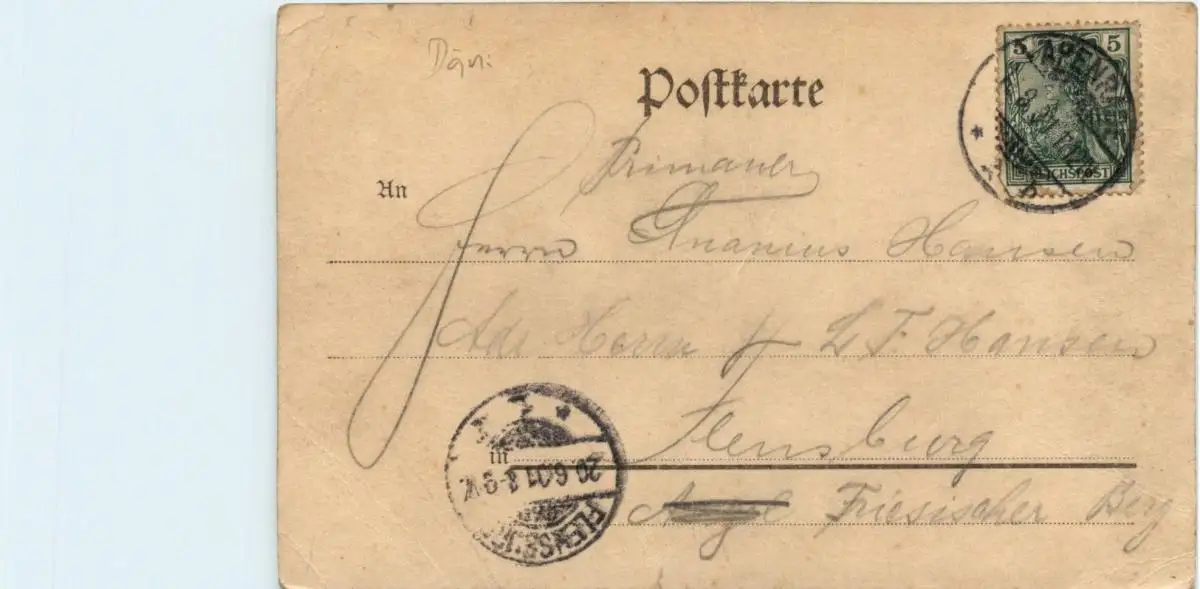 Dän.
Postkarte
5 5
APENRADE
REICHSPOST
An
Primaner
Herrn Ananius Hansen
Adr Herrn L F Hansen
Flensburg
in
Friesischer Berg
20.6.01 8-9 V.
FLENSBURG